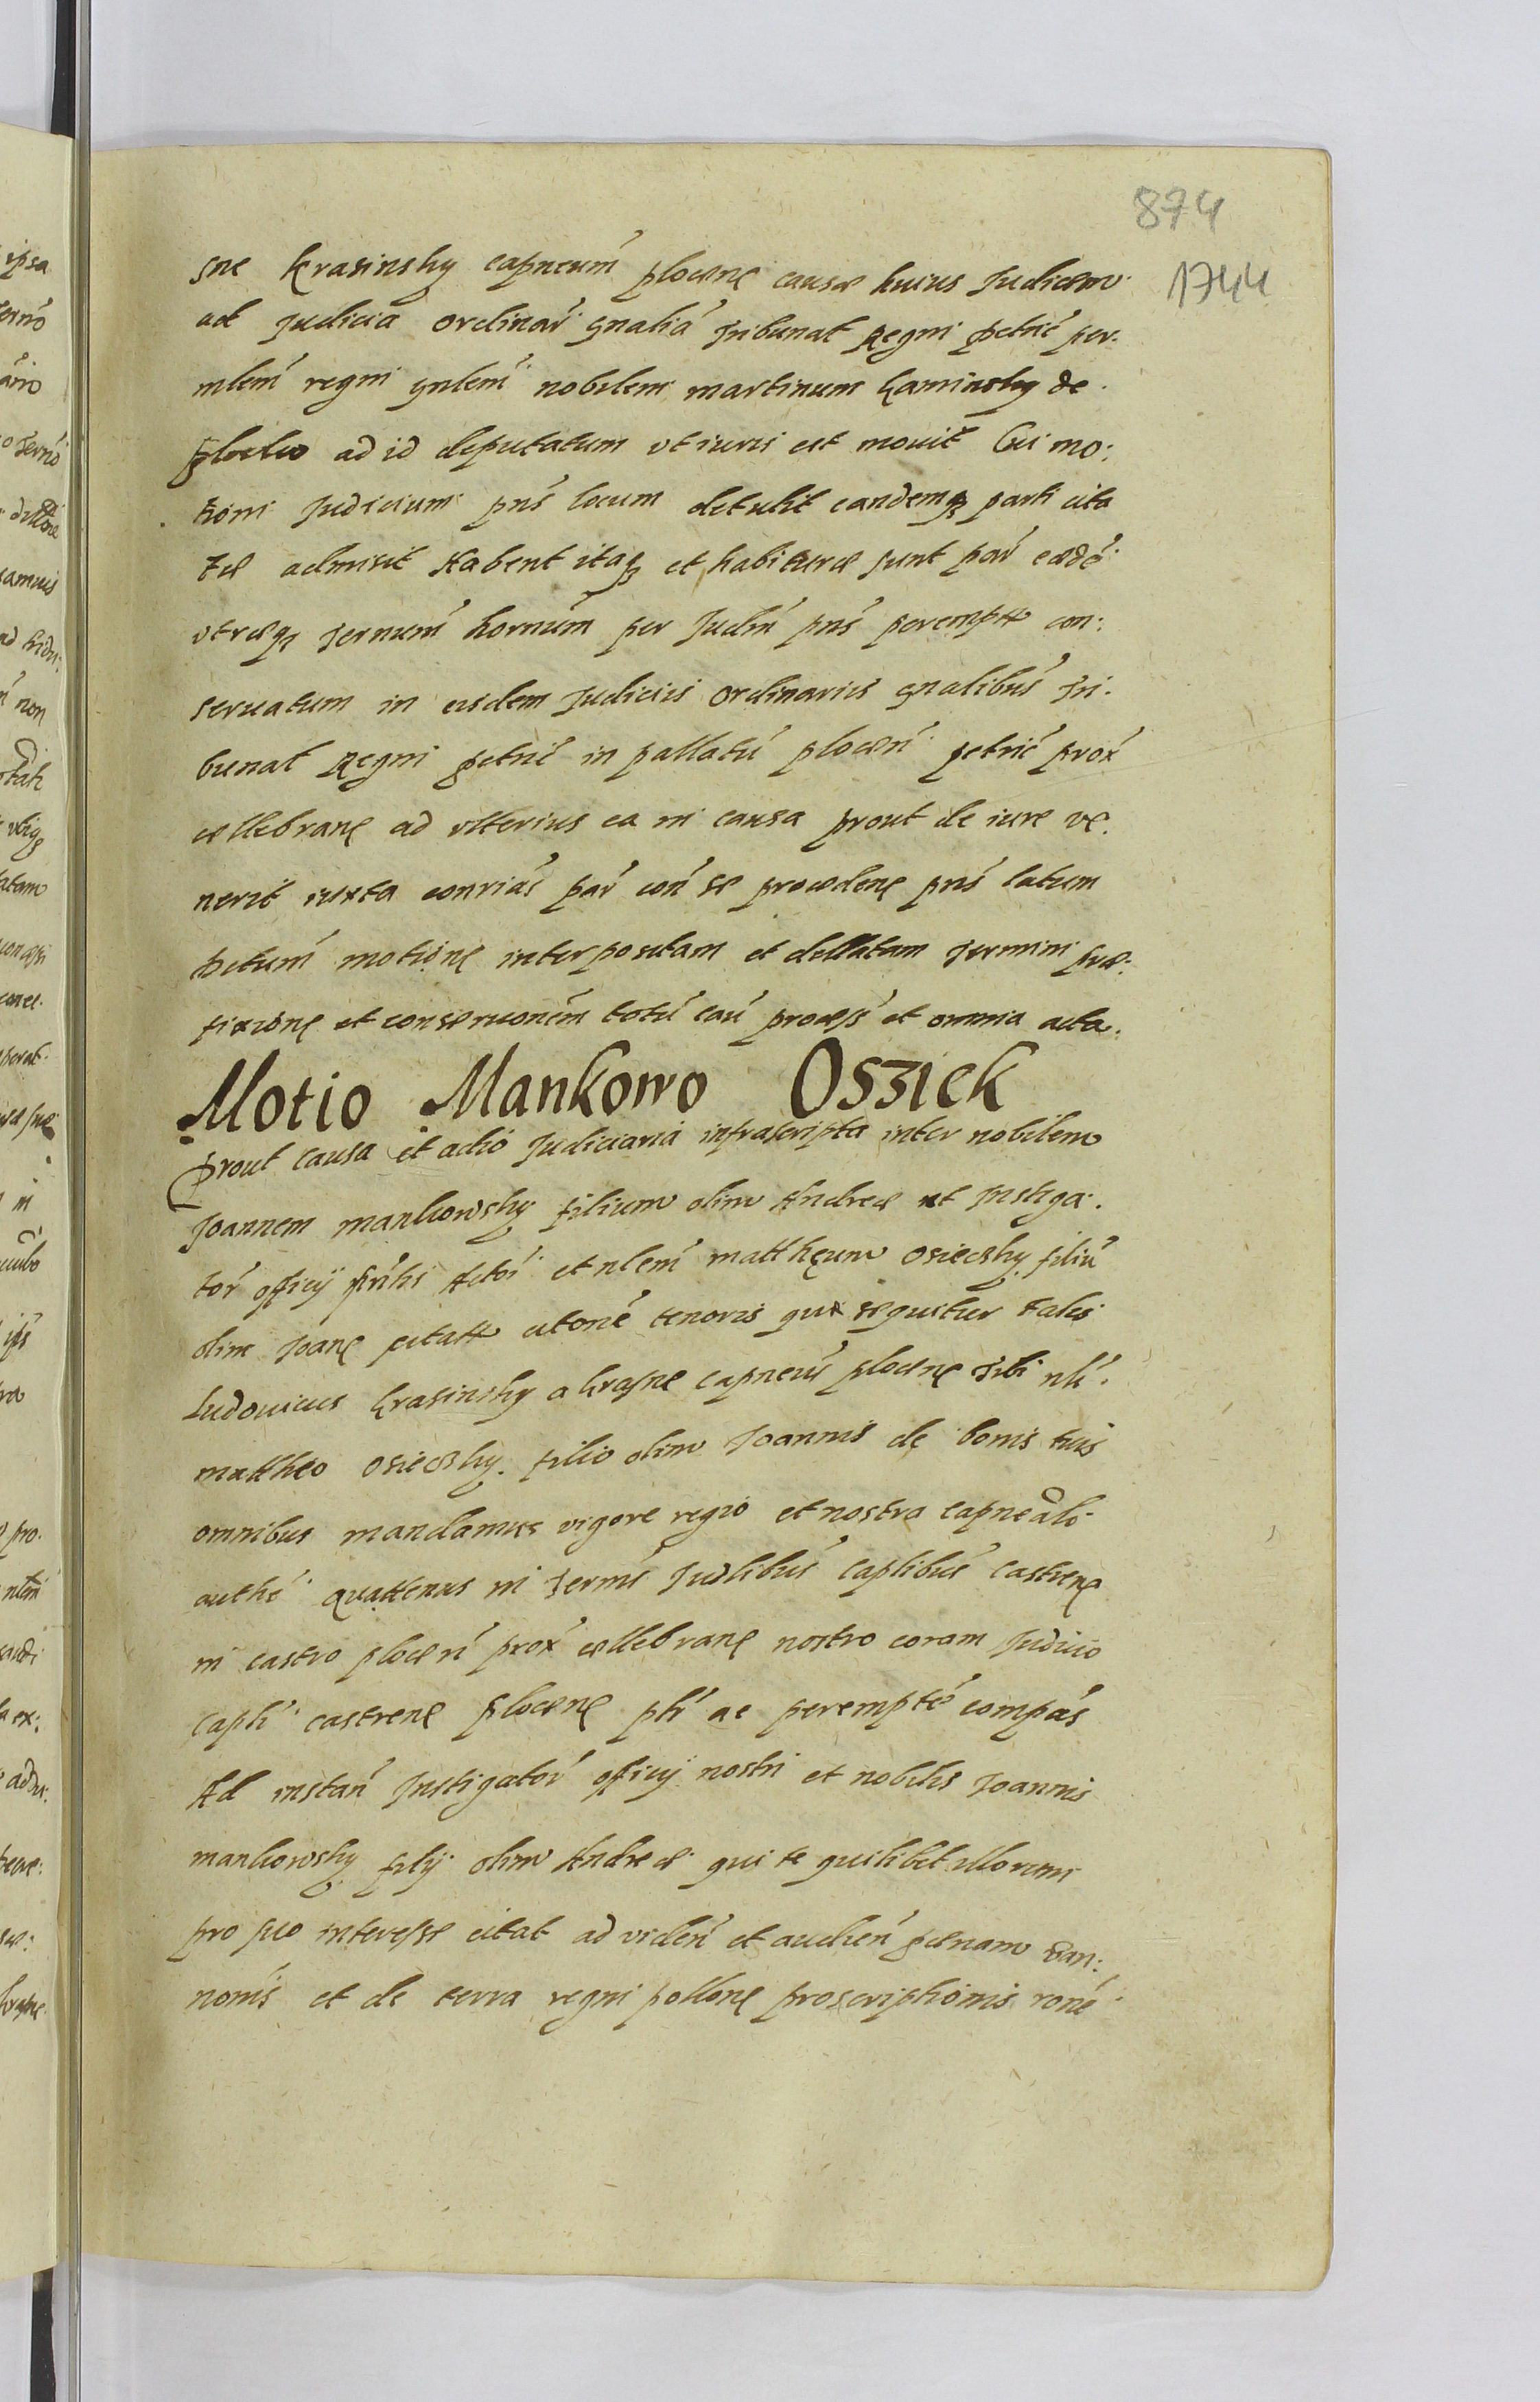 874
1744
sne Krasinsky capneum plocens causae huius Judicem
ad Judicia ordinar gnalia Tribunat Regni petric per
mlem regni gnlem nobilem martinum Kaminsky de
Plocko ad id deputatum ut iuris est mouit Cui mo:
tioni Judicium pns locum detulit eandemq parti cita
tae admisit Habent itaq et habiturae sunt par eaede
utraeq Termum hornum per Judm pns perempt con:
seruatum in eisdem Judiciis ordinariis gnalibus Tri.
bunat Regni petric in pallatu plocen petric prox
cellebrane ad ulterius ea in causa prout de iure ve.
nerit iuxta conrias par con se procedene pns latum
Detum motione interpositam et dellatam Termini prae:
fixione et conseruonem totu cau process et omnia acta.
Motio Mankowo Osziek
Prout causa et actio Judiciaria infrascripta inter nobilem
Joannem mankowsky filium olim Andreae et Instiga.
tor officij Actor et nlem mattheum osieczky filiu
olim Joane citatt citone tenoris qui sequitur talis
Ludouicus Krasinsky a Krasne capneus plocene Tibi nli.
mattheo osieczky filio olim Joannis de bonis tuis
omnibus mandamus vigore regio et nostra capneali
authe quattenus in Termis Judlibus caplibus castrene
in castro plocen prox cellebrane nostro coram Judicio
capli castrene plocene plr ac perempte compas
Ad instan Instigator officij nostri et nobilis Joannis
mankowsky filij olim Andreae qui te quilibet illorum
pro suo interesse citat ad viden et audien paenam ban:
nonis et de terra regni pollone proscriptionis rone